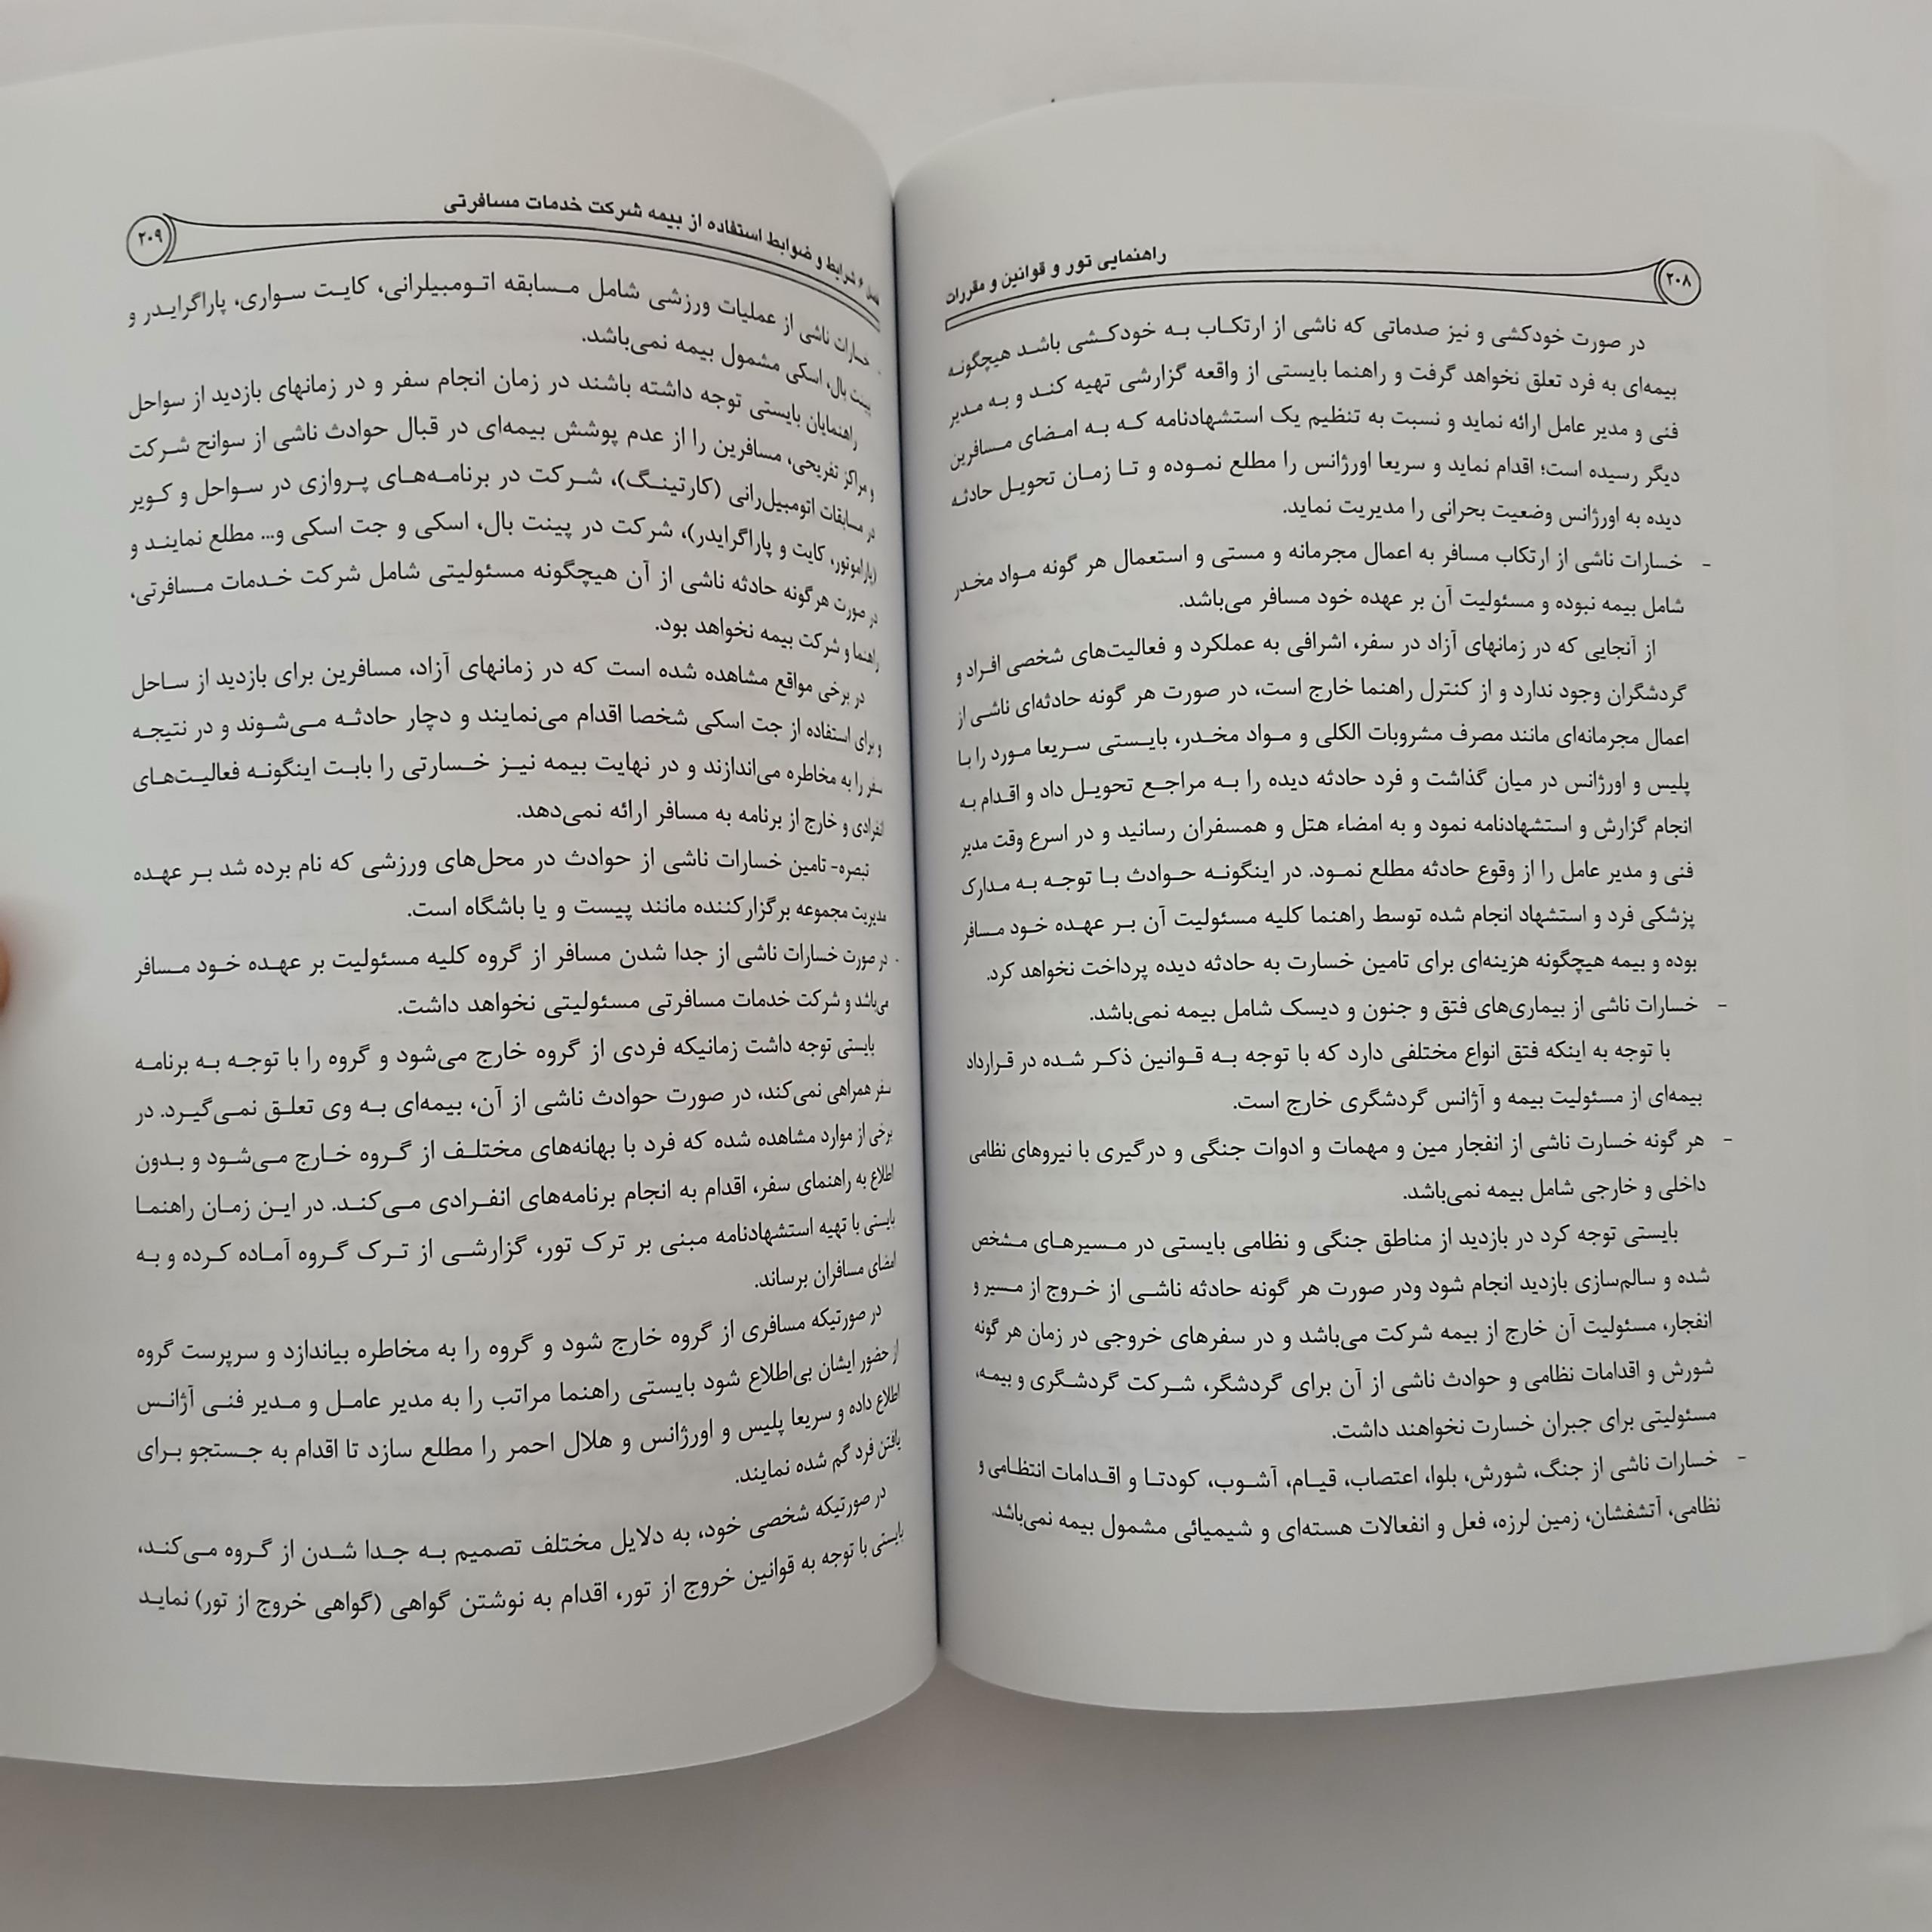 ۲۰۸
راهنمایی تور و قوانین و مقررات
در صورت خودکشی و نیز صدماتی که ناشی از ارتکاب به خودکشی باشد هیچگونه
بیمه‌ای به فرد تعلق نخواهد گرفت و راهنما بایستی از واقعه گزارشی تهیه کند و به مدیر
فنی و مدیر عامل ارائه نماید و نسبت به تنظیم یک استشهادنامه که به امضای مسافرین
دیگر رسیده است؛ اقدام نماید و سریعا اورژانس را مطلع نموده و تا زمان تحویل حادثه
دیده به اورژانس وضعیت بحرانی را مدیریت نماید.
- خسارات ناشی از ارتکاب مسافر به اعمال مجرمانه و مستی و استعمال هر گونه مواد مخدر
شامل بیمه نبوده و مسئولیت آن بر عهده خود مسافر می‌باشد.
از آنجایی که در زمانهای آزاد در سفر، اشرافی به عملکرد و فعالیت‌های شخصی افراد و
گردشگران وجود ندارد و از کنترل راهنما خارج است، در صورت هر گونه حادثه‌ای ناشی از
اعمال مجرمانه‌ای مانند مصرف مشروبات الکلی و مواد مخدر، بایستی سریعا مورد را با
پلیس و اورژانس در میان گذاشت و فرد حادثه دیده را به مراجع تحویل داد و اقدام به
انجام گزارش و استشهادنامه نمود و به امضاء هتل و همسفران رسانید و در اسرع وقت مدیر
فنی و مدیر عامل را از وقوع حادثه مطلع نمود. در اینگونه حوادث با توجه به مدارک
پزشکی فرد و استشهاد انجام شده توسط راهنما کلیه مسئولیت آن بر عهده خود مسافر
بوده و بیمه هیچگونه هزینه‌ای برای تامین خسارت به حادثه دیده پرداخت نخواهد کرد.
- خسارات ناشی از بیماری‌های فتق و جنون و دیسک شامل بیمه نمی‌باشد.
با توجه به اینکه فتق انواع مختلفی دارد که با توجه به قوانین ذکر شده در قرارداد
بیمه‌ای از مسئولیت بیمه و آژانس گردشگری خارج است.
- هر گونه خسارت ناشی از انفجار مین و مهمات و ادوات جنگی و درگیری با نیروهای نظامی
داخلی و خارجی شامل بیمه نمی‌باشد.
بایستی توجه کرد در بازدید از مناطق جنگی و نظامی بایستی در مسیرهای مشخص
شده و سالم‌سازی بازدید انجام شود ودر صورت هر گونه حادثه ناشی از خروج از مسیر و
انفجار، مسئولیت آن خارج از بیمه شرکت می‌باشد و در سفرهای خروجی در زمان هر گونه
شورش و اقدامات نظامی و حوادث ناشی از آن برای گردشگر، شرکت گردشگری و بیمه،
مسئولیتی برای جبران خسارت نخواهند داشت.
- خسارات ناشی از جنگ، شورش، بلوا، اعتصاب، قیام، آشوب، کودتا و اقدامات انتظامی و
نظامی، آتشفشان، زمین لرزه، فعل و انفعالات هسته‌ای و شیمیائی مشمول بیمه نمی‌باشد.
فصل ۶ شرایط و ضوابط استفاده از بیمه شرکت خدمات مسافرتی
۲۰۹
- خسارات ناشی از عملیات ورزشی شامل مسابقه اتومبیلرانی، کایت سواری، پاراگرایدر و
پینت بال، اسکی مشمول بیمه نمی‌باشد.
راهنمایان بایستی توجه داشته باشند در زمان انجام سفر و در زمانهای بازدید از سواحل
و مراکز تفریحی، مسافرین را از عدم پوشش بیمه‌ای در قبال حوادث ناشی از سوانح شرکت
در مسابقات اتومبیل‌رانی (کارتینگ)، شرکت در برنامه‌های پروازی در سواحل و کویر
(پاراموتور، کایت و پاراگرایدر)، شرکت در پینت بال، اسکی و جت اسکی و... مطلع نمایند و
در صورت هرگونه حادثه ناشی از آن هیچگونه مسئولیتی شامل شرکت خدمات مسافرتی،
راهنما و شرکت بیمه نخواهد بود.
در برخی مواقع مشاهده شده است که در زمانهای آزاد، مسافرین برای بازدید از ساحل
و برای استفاده از جت اسکی شخصا اقدام می‌نمایند و دچار حادثه می‌شوند و در نتیجه
سفر را به مخاطره می‌اندازند و در نهایت بیمه نیز خسارتی را بابت اینگونه فعالیت‌های
انفرادی و خارج از برنامه به مسافر ارائه نمی‌دهد.
تبصره- تامین خسارات ناشی از حوادث در محل‌های ورزشی که نام برده شد بر عهده
مدیریت مجموعه برگزارکننده مانند پیست و یا باشگاه است.
- در صورت خسارات ناشی از جدا شدن مسافر از گروه کلیه مسئولیت بر عهده خود مسافر
می‌باشد و شرکت خدمات مسافرتی مسئولیتی نخواهد داشت.
بایستی توجه داشت زمانیکه فردی از گروه خارج می‌شود و گروه را با توجه به برنامه
سفر همراهی نمی‌کند، در صورت حوادث ناشی از آن، بیمه‌ای به وی تعلق نمی‌گیرد. در
برخی از موارد مشاهده شده که فرد با بهانه‌های مختلف از گروه خارج می‌شود و بدون
اطلاع به راهنمای سفر، اقدام به انجام برنامه‌های انفرادی می‌کند. در این زمان راهنما
بایستی با تهیه استشهادنامه مبنی بر ترک تور، گزارشی از ترک گروه آماده کرده و به
امضای مسافران برساند.
در صورتیکه مسافری از گروه خارج شود و گروه را به مخاطره بیاندازد و سرپرست گروه
از حضور ایشان بی‌اطلاع شود بایستی راهنما مراتب را به مدیر عامل و مدیر فنی آژانس
اطلاع داده و سریعا پلیس و اورژانس و هلال احمر را مطلع سازد تا اقدام به جستجو برای
یافتن فرد گم شده نمایند.
در صورتیکه شخصی خود، به دلایل مختلف تصمیم به جدا شدن از گروه می‌کند،
بایستی با توجه به قوانین خروج از تور، اقدام به نوشتن گواهی (گواهی خروج از تور) نماید